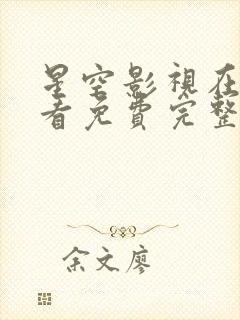 星空影視在
看免費完整
余文廖